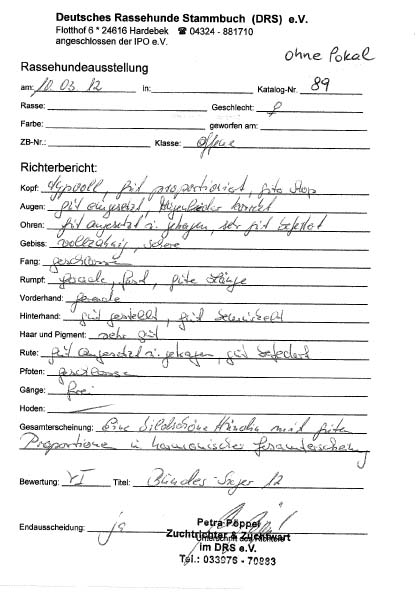 Deutsches Rassehunde Stammbuch (DRS) e.V.
Flotthof 6 * 24616 Hardebek ☎ 04324 - 881710
angeschlossen der IPO e.V.
ohne Pokal
Rassehundeausstellung
am: 10.03.12 in: Katalog-Nr. 89
Rasse: Geschlecht:
Farbe: geworfen am:
ZB-Nr.: Klasse: offene
Richterbericht:
Kopf: typvoll, gut proportioniert, guter Stop
Augen: gut eingesetzt, Augenlieder korrekt
Ohren: gut angesetzt u. getragen, sehr gut befedert
Gebiss: vollzahnig, Schere
Fang: geschlossen
Rumpf: gerade, fest, gute Länge
Vorderhand: gerade
Hinterhand: gut gestellt, gut bemuskelt
Haar und Pigment: sehr gut
Rute: gut angesetzt u. getragen, gut befedert
Pfoten: geschlossen
Gänge: frei
Hoden:
Gesamterscheinung: Eine bildschöne Hündin mit guten
Proportionen u. harmonischer Gesamterscheinung
Bewertung: V1 Titel: Bundes-Sieger 12
Endausscheidung: ja
Petra Pöppel
Zuchtrichter & Zuchtwart
im DRS e.V.
Tel.: 033976 - 70883